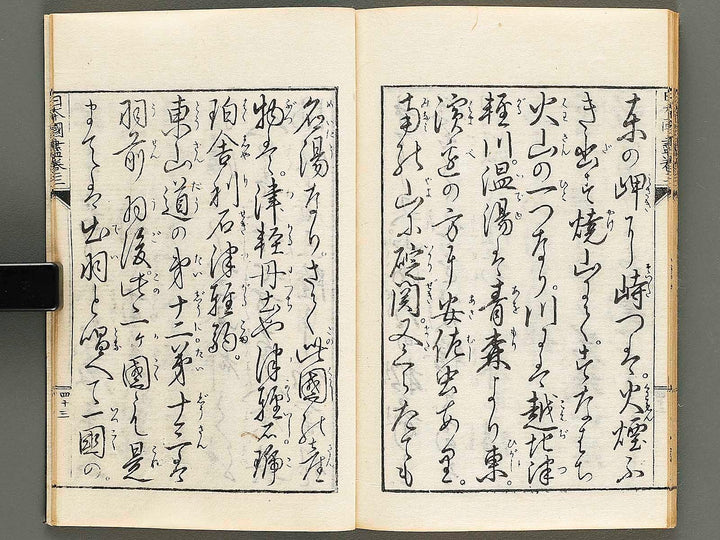 東の岬に峙つは。火煙ふ
き出す焼山にて。すなはち
火山の一つなり。川には越地津
軽川。温湯は青森より東。
濱邊の方に安佐虫あり。
南の山に碇関又くらたても
名湯なり。さて此國の産
物は。津軽丹土や津軽石硴
珀舎利石津軽駒。
東山道の第十二第十三は
羽前羽後此二ヶ國も是
まては出羽と唱へて一國の。
四十三